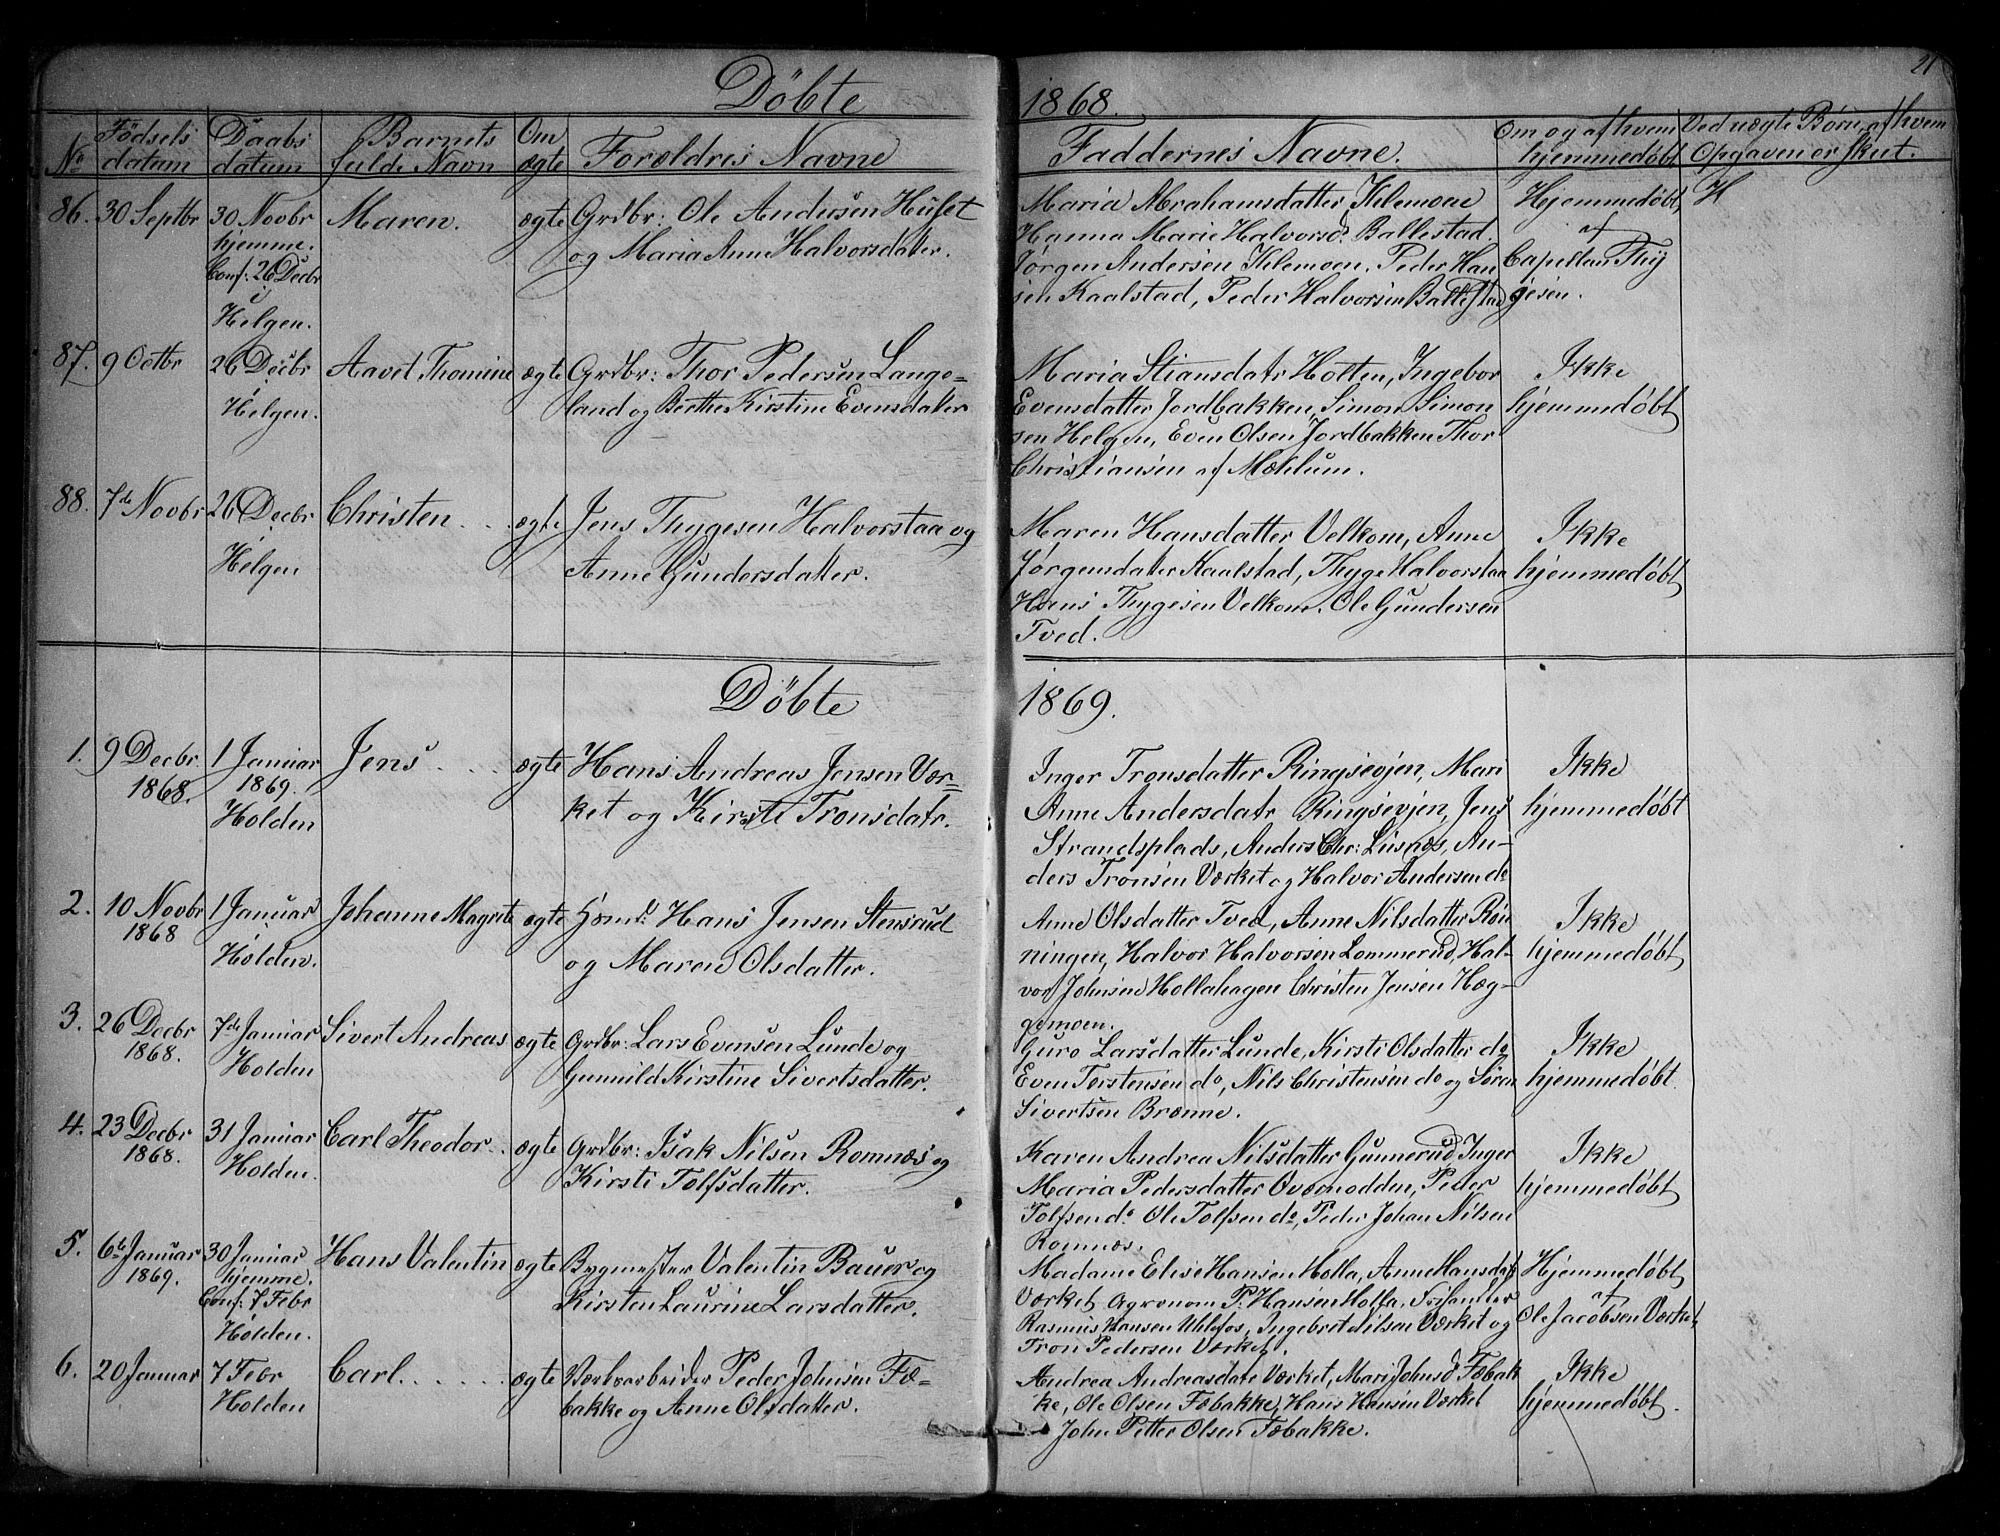 Döbte
1868.
21
No
Födsels datum
Daabs datum
Barnets fulde Navn
Om ægte
Forældres Navne
Faddernes Navne.
Om og af hvem hjemmedøbt
Ved uægte Børn, af hvem Opgaven er skeet.
86. 30 Septbr
30 Novbr
hjemme.
Conf: 26 Decbr
i
Helgen.
Maren.
ægte
Grdbr: Ole Andersen Huset
og Maria Anne Halvorsdatter.
Maria Abrahamsdatter Kilemoene
Hanna Marie Halvorsd. Ballestad.
Jørgen Andersen Kilemoen. Peder Han
sen Kaalstad, Peder Halvorsen Ballestad
Hjemmedøbt,
af
Capellan Thy
gesen.
H
87. 9 Octbr
26 Decbr
i
Helgen.
Aavet Thomine
ægte
Grdbr: Thor Pedersen Lange=
land og Berthe Kirstine Evensdatter
Maria Stiansdatr Hotten, Ingebor
Evensdatter Jordbakken, Simon Simon
sen Helgen, Even Olsen Jordbakken Thor
Christiansen af Mæhlum.
Ikke
hjemmedøbt
88. 7de Novbr
26 Decbr
Helgen
Christen . . .
ægte
Jens Thygesen Halvorstaa og
Anne Gundersdatter.
Maren Hansdatter Velkom, Anne
Jørgensdatter Kaalstad, Thyge Halvorstaa
Hans Thygesen Velkom. Ole Gundersen
Tved.
Ikke
hjemmedøbt
Döbte
1869.
1. 9 Decbr
1868.
1 Januar
1869.
Holden
Jens . . .
ægte
Hans Andreas Jensen Vær=
ket og Kirsti Tronsdatr.
Inger Tronsdatter Ringsevjen, Mari
Anne Andersdatr Ringsevjen, Jens
Strandsplads, Anders Chr: Lusnæs, An=
ders Tronsen Værket og Halvor Andersen do
Ikke
hjemmedøbt
2. 10 Novbr
1868
1 Januar
Holden.
Johanne Magrete
ægte
Hans Jensen Stensrud
og Maren Olsdatter.
Anne Olsdatter Tved, Anne Nilsdatter Røn
ningen, Halvor Halvorsen Lommerud, Hal=
vor Johnsen Hollahagen Christen Jensen Hæg=
gemoen.
Ikke
hjemmedøbt
3. 26 Decbr
1868.
7de Januar
Holden
Sivert Andreas
ægte
Grdbr: Lars Evensen Lunde og
Gunnild Kirstine Sivertsdatter.
Guro Larsdatter Lunde, Kirsti Olsdatter do
Even Torstensen do, Nils Christensen do og Søren
Sivertsen Brænne.
Ikke
hjemmedøbt.
4. 23 Decbr
1868.
31 Januar
Holden.
Carl Theodor . .
ægte
Grdbr: Isak Nilsen Romnæs og
Kirsti Tolfsdatter.
Karen Andrea Nilsdatter Gunnerud Inger
Maria Pedersdatter Ovenodden, Peder
Tolfsen do. Ole Tolfsen do, Peder Johan Nilsen
Romnæs.
Ikke
hjemmedøbt
5. 6te Januar
1869.
30 Januar
hjemme.
Conf: 7 Febr
Holden.
Hans Valentin
ægte
Bygmester Valentin Bauer og
Kirsten Laurine Larsdatter.
Madame Elise Hansen Holla, Anne Hansdr
Værket Agronom P. Hansen Holla,
Rasmus Hansen Uhlefos, Ingebret Nilsen Værket og
Tron Pedersen Værket.
Hjemmedøbt
af
Ole Jacobsen Værket
6. 20 Januar
7 Febr
Holden
Carl. . . . .
ægte
Værksarbeider Peder Johnsen Fæ=
bakke og Anne Olsdatter.
Andrea Andreasdatr Værket, Mari Johnsd Fæbak
ke, Ole Olsen Fæbakke, Hans Hansen Værket
John Petter Olsen Fæbakke.
Ikke
hjemmedøbt.